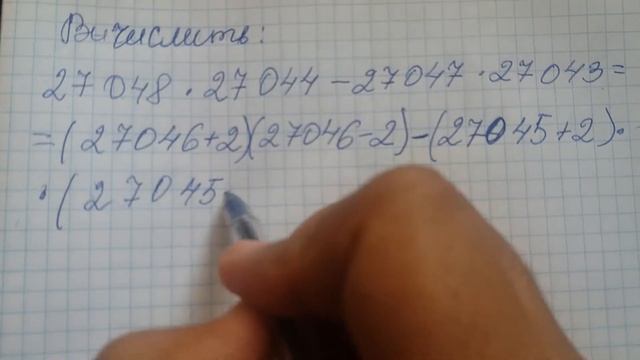 Вычислить:
27 048 · 27 044 − 27 047 · 27 043 =
= ( 27046+2)(27046−2)−(27045+2)·
· ( 27 045